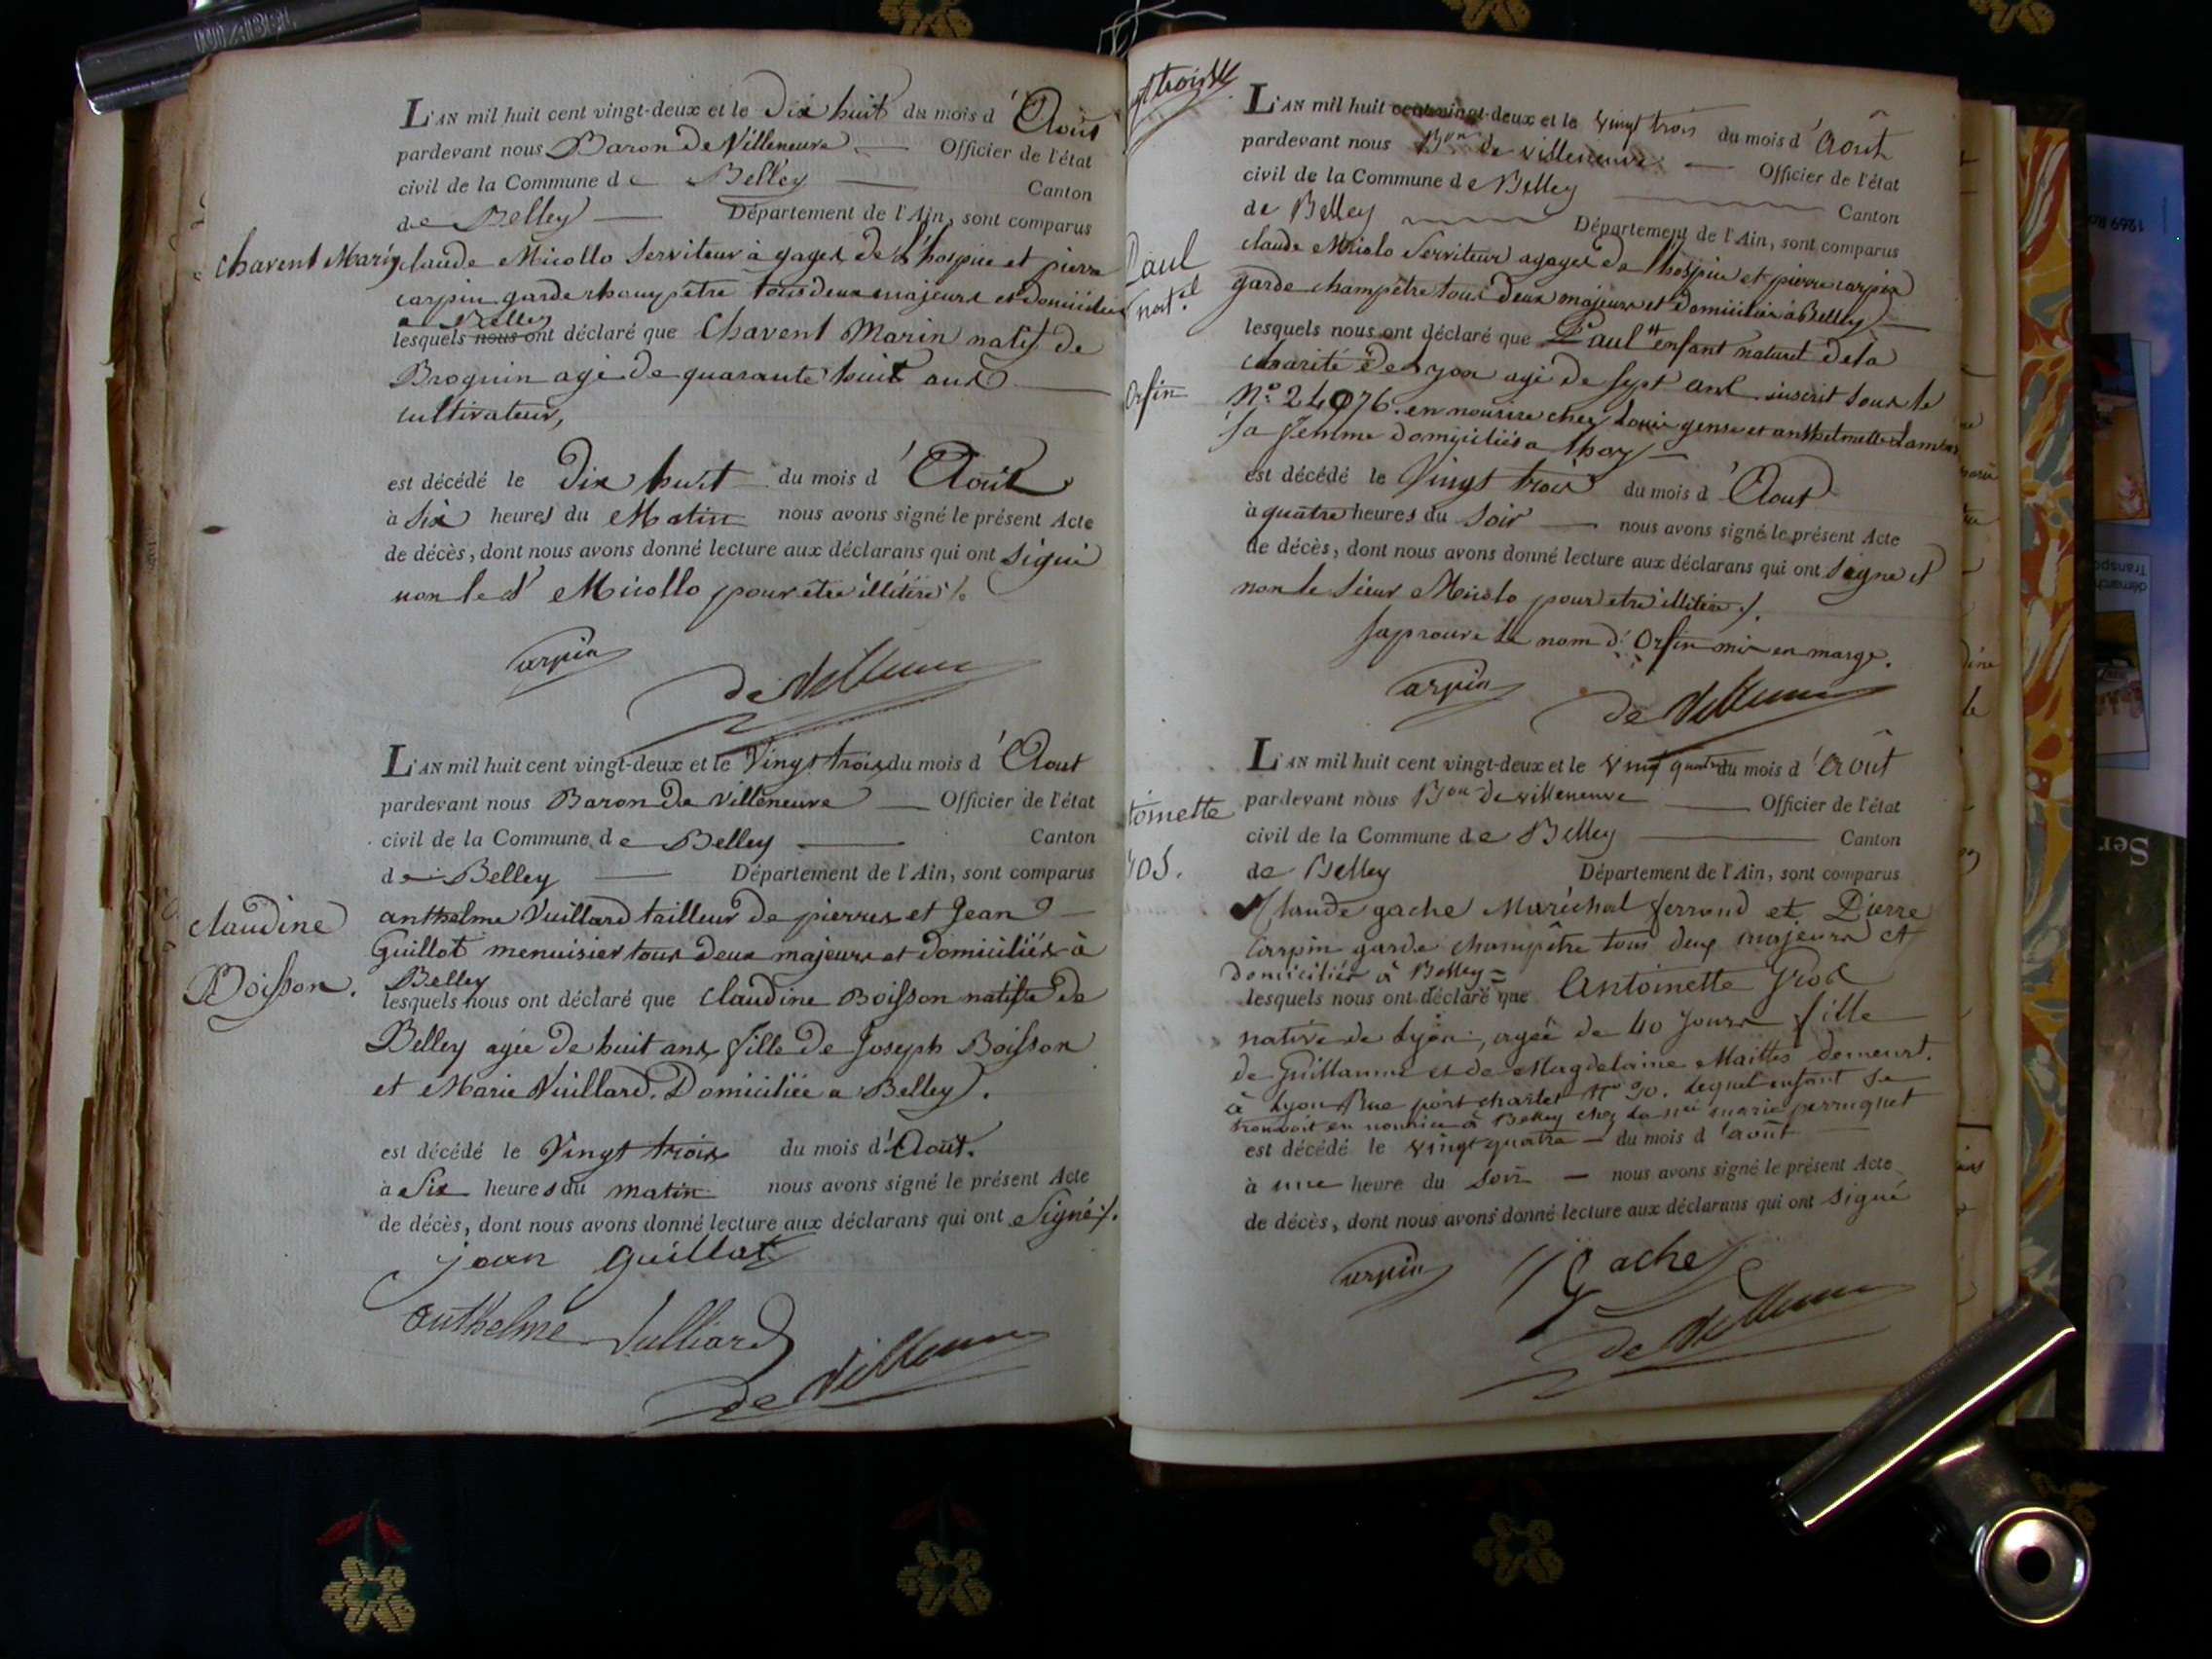 L'AN mil huit cent vingt-deux et le Dix huit du mois d'Août
pardevant nous Baron De Villeneuve Officier de l'état
civil de la Commune de Belley Canton
de Belley Département de l'Ain, sont comparus
Chavent Marin
claude Micollo Serviteur à gages de L'hospice et pierre
carpin garde champêtre tous deux majeurs et domiciliés
a Belley
lesquels nous ont déclaré que Chavent Marin natif de
Brognin agé De quarante huit ans
cultivateur,
est décédé le Dix huit du mois d'Août
à Six heures du Matin nous avons signé le présent Acte
de décès, dont nous avons donné lecture aux déclarans qui ont signé
non le Sr Micollo pour être illitéré
Carpin
de Villeneuve
L'AN mil huit cent vingt-deux et le Vingt trois du mois d'Aout
pardevant nous Baron De Villeneuve Officier de l'état
civil de la Commune de Belley Canton
de Belley Département de l'Ain, sont comparus
claudine
Boisson.
anthelme Vuillard tailleur de pierres et Jean
Guillot menuisier tous deux majeurs et domiciliés à
Belley
lesquels nous ont déclaré que claudine Boisson native de
Belley agée de huit ans fille De Joseph Boisson
et Marie Vuillard. Domiciliée a Belley.
est décédé le Vingt trois du mois d'Août.
à Six heures du matin nous avons signé le présent Acte
de décès, dont nous avons donné lecture aux déclarans qui ont Signé.
jean guillot
anthelme Vulliard
de Villeneuve
L'AN mil huit cent vingt-deux et le vingt trois du mois d'Août
pardevant nous Bon de villeneuve Officier de l'état
civil de la Commune de Belley Canton
de Belley Département de l'Ain, sont comparus
Paul
nat.el
Orfin
claude Micolo Serviteur a gages de l'hospice et pierre carpin
garde champêtre tous deux majeurs et domiciliés à Belley
lesquels nous ont déclaré que Paul enfant naturel de la
charité de Lyon agé de sept ans inscrit sous le
N° 24076. en nourice chez Louis gense et anthelmette
sa femme domiciliés a thoy
est décédé le Vingt trois du mois d'Aout
à quatre heures du soir nous avons signé le présent Acte
de décès, dont nous avons donné lecture aux déclarans qui ont signé et
non le sieur Micolo pour etre illitéré.
japrouve le nom d'Orfin mis en marge.
Carpin
de Villeneuve
L'AN mil huit cent vingt-deux et le vingt quatre du mois d'Août
pardevant nous Bon de villeneuve Officier de l'état
civil de la Commune de Belley Canton
de Belley Département de l'Ain, sont comparus
Claude gache Maréchal ferrand et Pierre
Carpin garde champêtre tous deux majeurs et
domiciliés à Belley
lesquels nous ont déclaré que Antoinette Gros
native de Lyon, agée de 40 jours fille
de Guillaume et de Magdelaine Maittes demeurt.
à Lyon Rue port charlet N° 90. lequel enfant se
trouvoit en nourice à Belley chez la née marie perruquet
est décédé le vingt quatre du mois d'août
à une heure du soir nous avons signé le présent Acte
de décès, dont nous avons donné lecture aux déclarans qui ont signé
Carpin
Gache
de Villeneuve